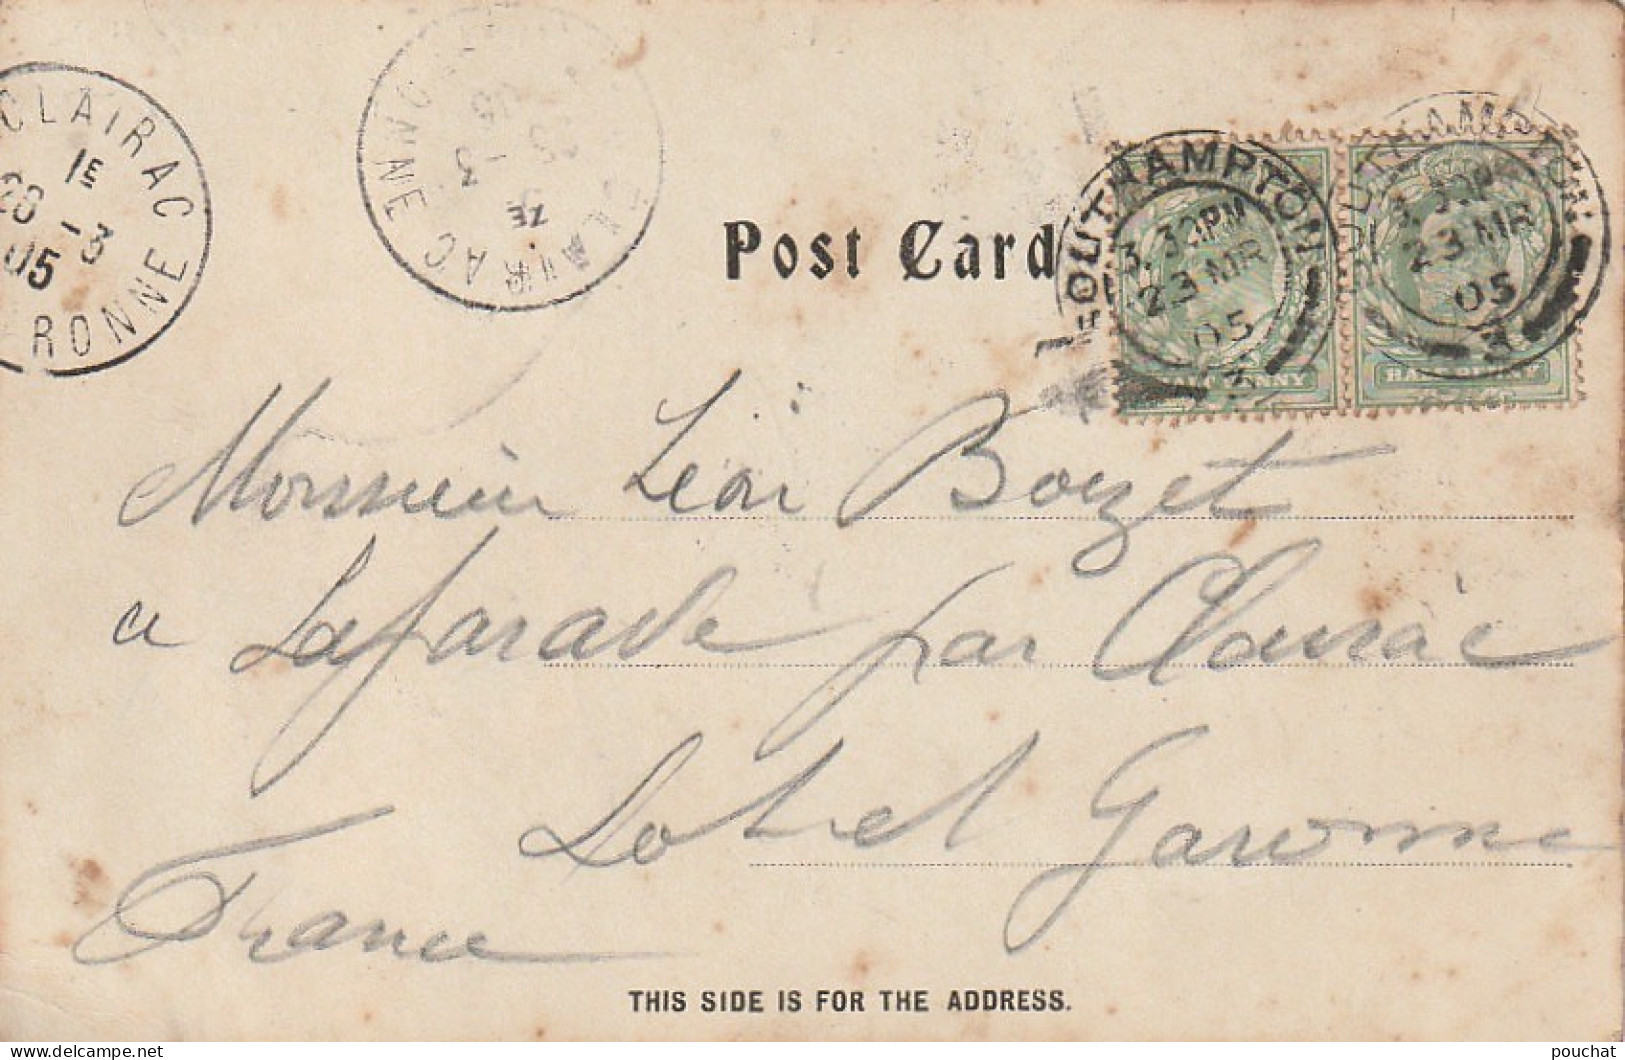 CLAIRAC
1E
26 -3
05
RONNE
CLAIRAC
-3
2E
Post Card
SOUTHAMPTON
3.30PM
23 MR
05
3
SOUTHAMPTON
3.30PM
23 MR
05
3
HALFPENNY
Monsieur Léon Bouzet
a Lafarade par Clairac
Lot et Garonne
France
THIS SIDE IS FOR THE ADDRESS.
pouchat